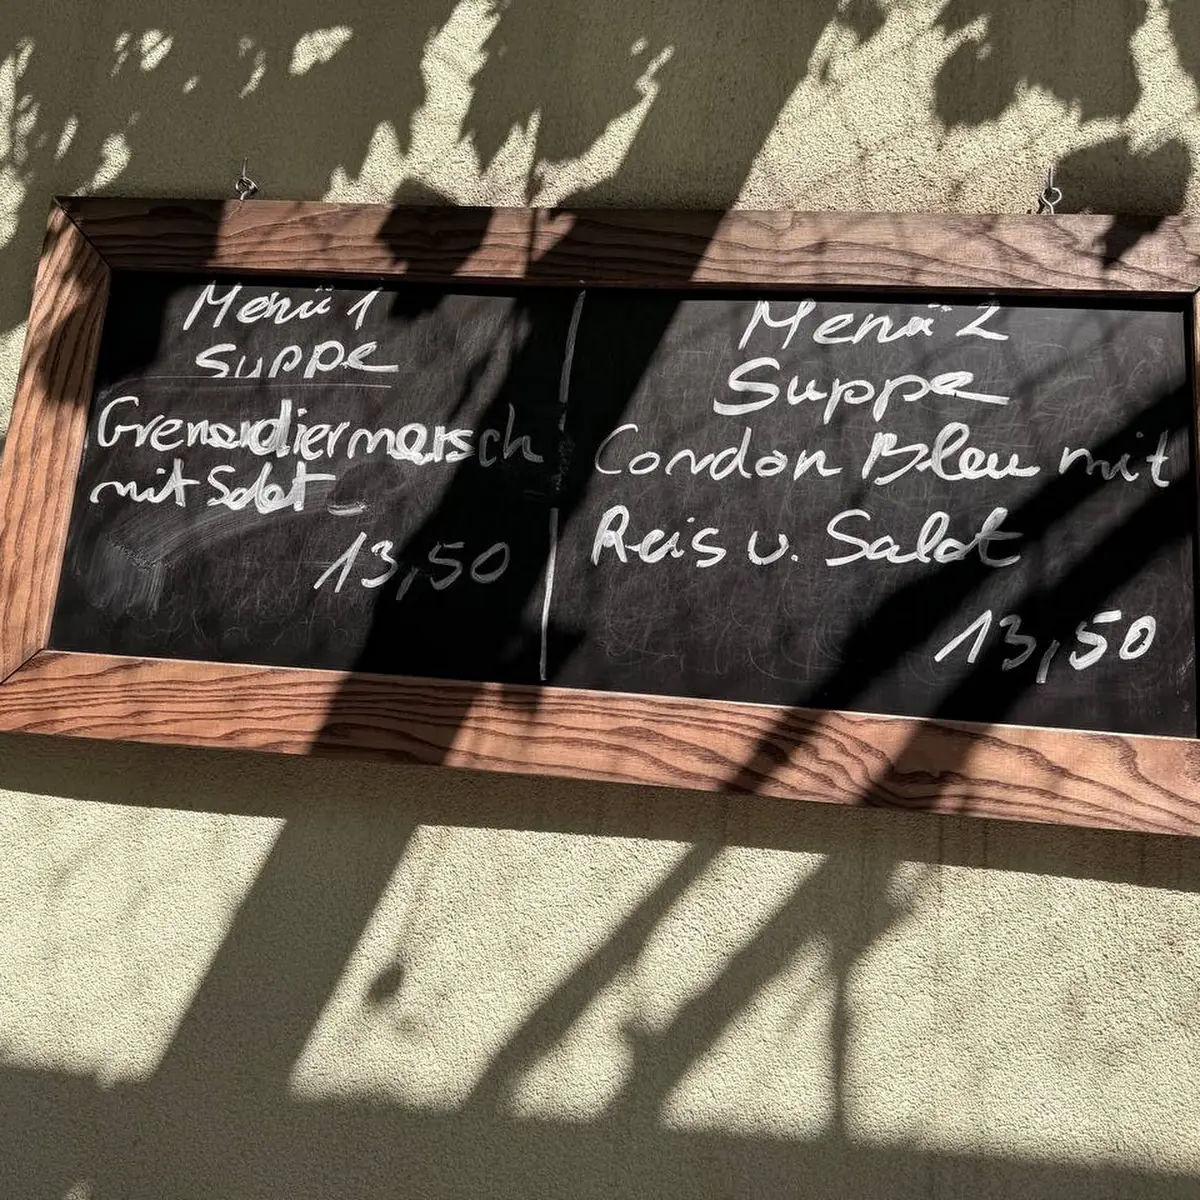 Menü 1
Suppe
Grenardiermarsch
mit Salat
13,50
Menü 2
Suppe
Condon Bleu mit
Reis u. Salat
13,50